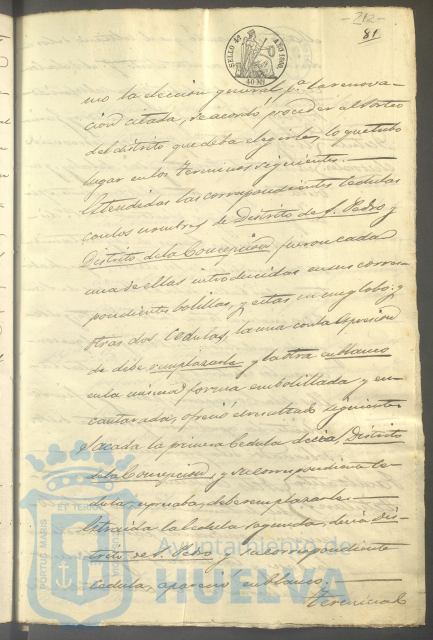 -212-
81
SELLO 4º AÑO 1860
40 Mª
mo la eleccion general p.ª la renova-
cion citada, se acordó proceder al sorteo
del distrito que deba elegirlos, lo que tubo
lugar en los terminos siguientes.
Estendidas las correspondientes Cedulas
con los nombres de Distrito de S. Pedro y
Distrito de la Concepcion fueron cada
una de ellas introducidas en sus corres-
pondientes bolillas, y estas en un globo; y
otras dos Cedulas, la una con la espresion
de debe remplazarla y la otra en blanco
en la misma forma embolillada y en-
cantarada, ofreció el resultado siguiente.
Sacada la primera Cedula decia, Distrito
de la Concepcion, y su correspondiente Ce-
dula, espresaba, debe remplazarla.
Estraida la Cedula segunda, decia Dis-
trito de S. Pedro y su correspondiente
Cedula, aparecio en blanco.
PORTUS MARIS
ET TERRÆ
Ayuntamiento de
HUELVA